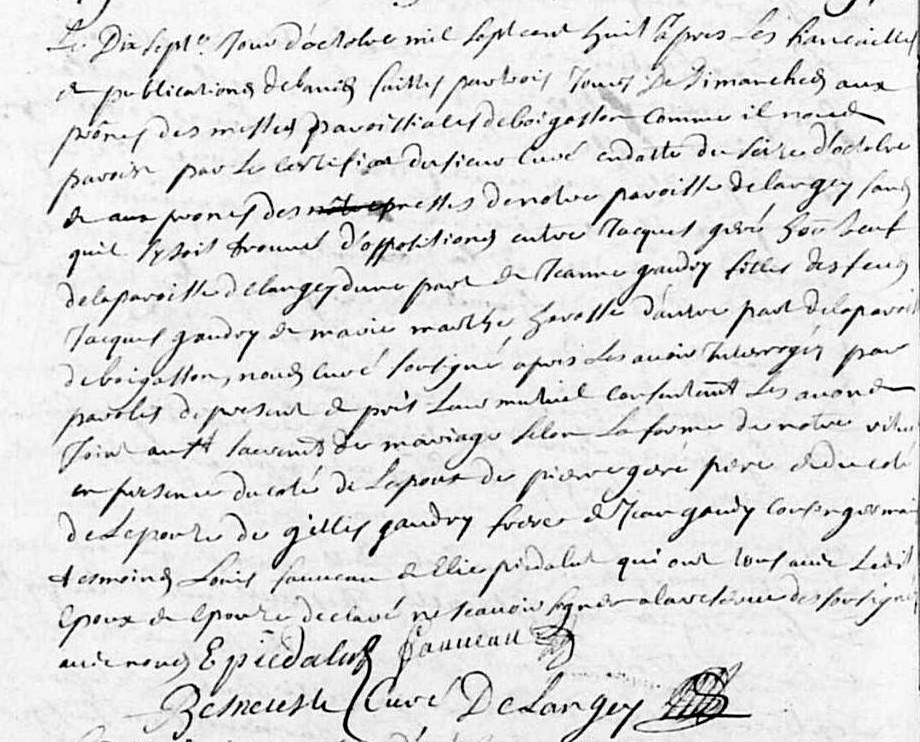 Le Dix sept.e Jour d'octobre mil sept cent huit apres Les fiancailles
et publications de bans faittes par trois Jours De Dimanches aux
prônes des messes paroissiales de boigasson comme il nous
paroit par Le certificat du sieur Curé en datte du seize d'octobre
et aux prones des messes de notre paroisse de langey sans
quil sy soit trouué d'oppositions entre Jacques geré veuf
de la paroisse de langey dune part et Jeanne gaudry fille des feus
Jacques gaudry et marie marthe d'autre part de la paroi
de boigasson, nous Curé soubsigné apres Les avoir Interrogés par
paroles de present et pris Leur mutuel consentemt Les auons
Joint au st sacremt de mariage selon La forme de notre
en presence du coté de Lepoux de pierre geré pere et du coté
de Lepouze de gilles gaudry frere et Jean gaudry cousin germai
tesmoins Louis fauueau et Elie piedalu qui ont tous auec Ledit
Epoux et Epouze declaré ne scauoir signer a la reserue des soussignés
auec nous E piedalu fauueau
Besneuste Curé De Langey